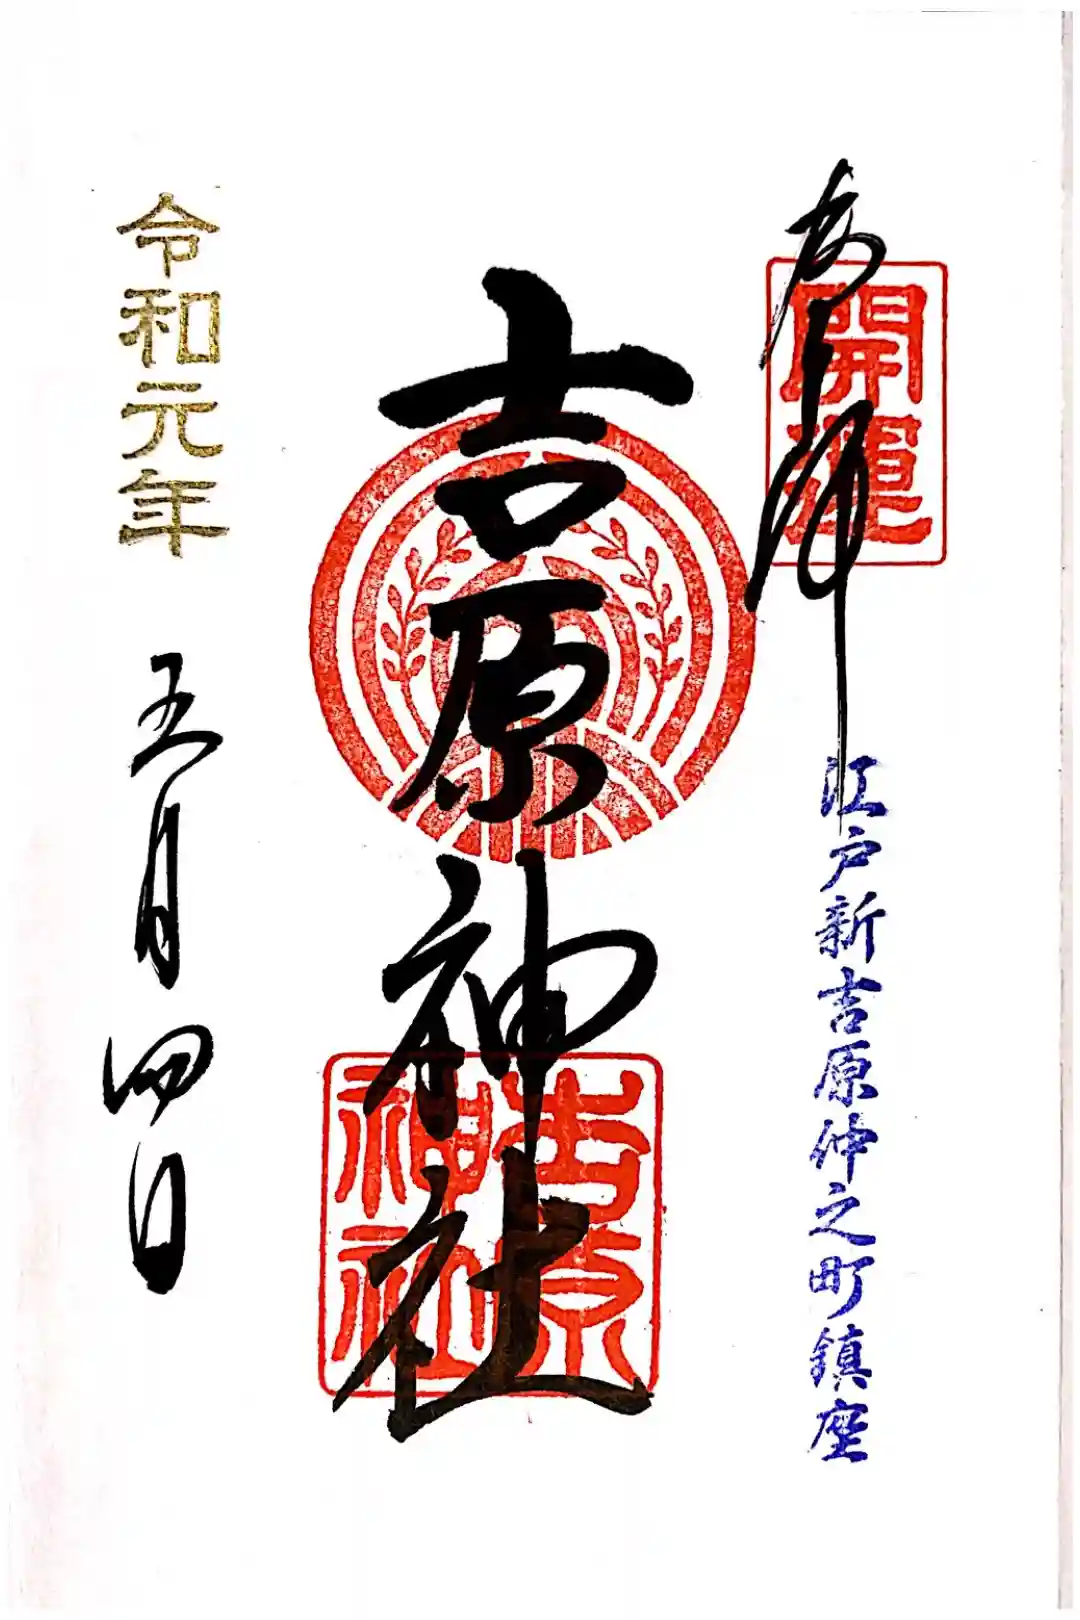 奉拝
開運
江戸新吉原仲之町鎮座
吉原神社
吉原
神社
令和元年
五月四日